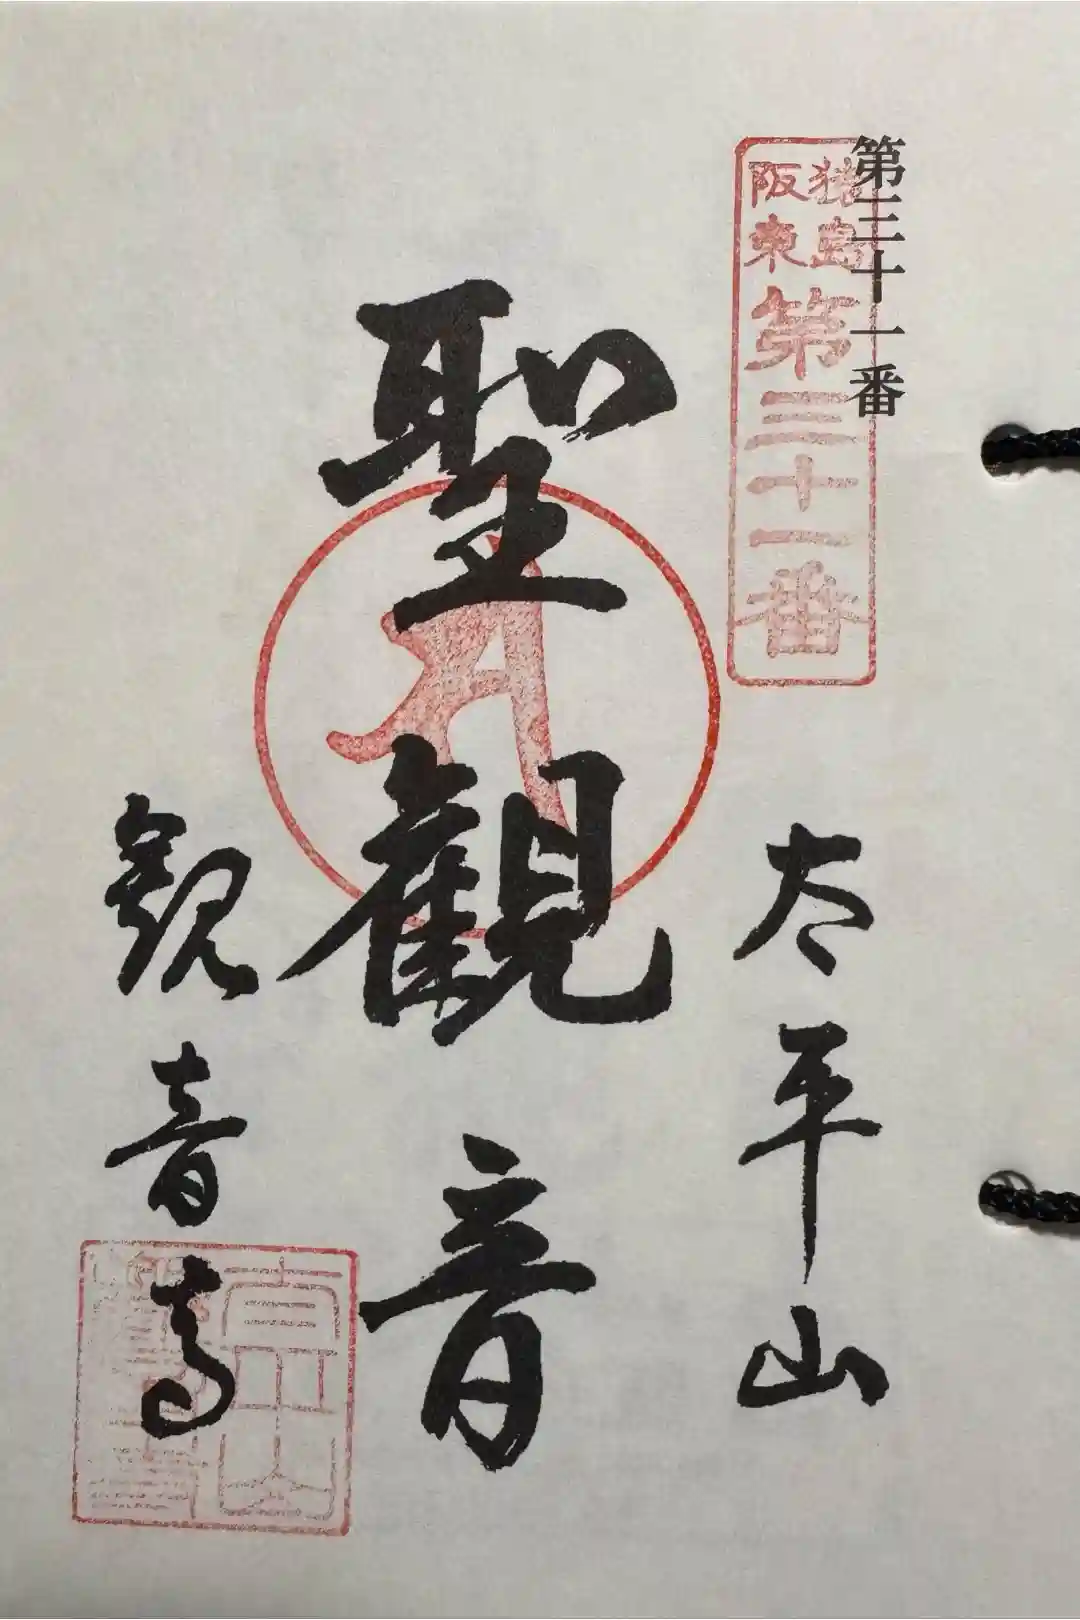 第三十一番
猿島
阪東
第三十一番
太平山
聖觀音
観音寺